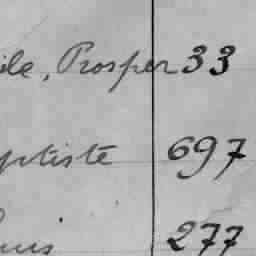 ile, Prosper 33
ptiste 697
uis 277